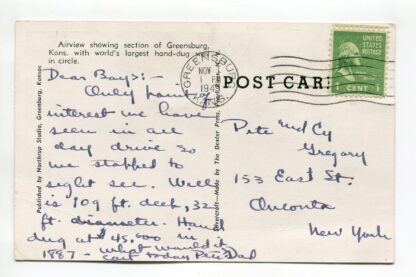 Airview showing section of Greensburg,
Kans. with world's largest hand-dug well
in circle.
GREENSBURG
NOV
1 PM
194
KANS.
UNITED
STATES
POSTAGE
1 CENT 1
POST CARD
Dear Boys:-
Only point of
interest we have
seen in all
day drive so
we stopped to
sight see. Well
is 109 ft. deep, 32
ft. diameter. Hand
dug at $45,000 in
1887 - what would it
cost today Pete Dad
Pete and Cy
Gregory
153 East St.
Oneonta
New York
Published by Northrup Studio, Greensburg, Kansas
Made by The Dexter Press,